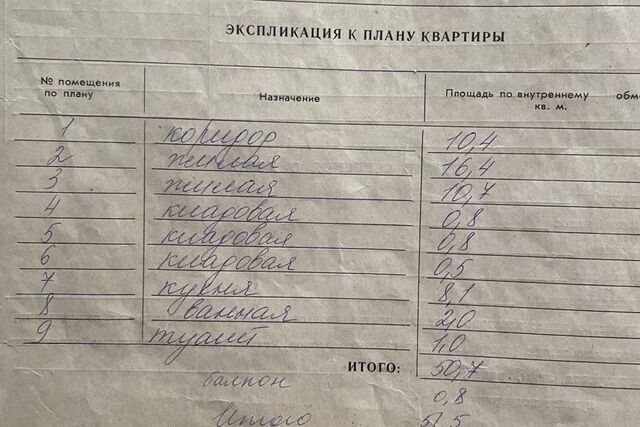 ЭКСПЛИКАЦИЯ К ПЛАНУ КВАРТИРЫ
№ помещения по плану Назначение Площадь по внутреннему обм кв. м.
1 коридор 10,4
2 жилая 16,4
3 жилая 10,7
4 кладовая 0,8
5 кладовая 0,8
6 кладовая 0,5
7 кухня 8,1
8 ванная 2,0
9 туалет 1,0
ИТОГО: 50,7
балкон 0,8
Итого 51,5